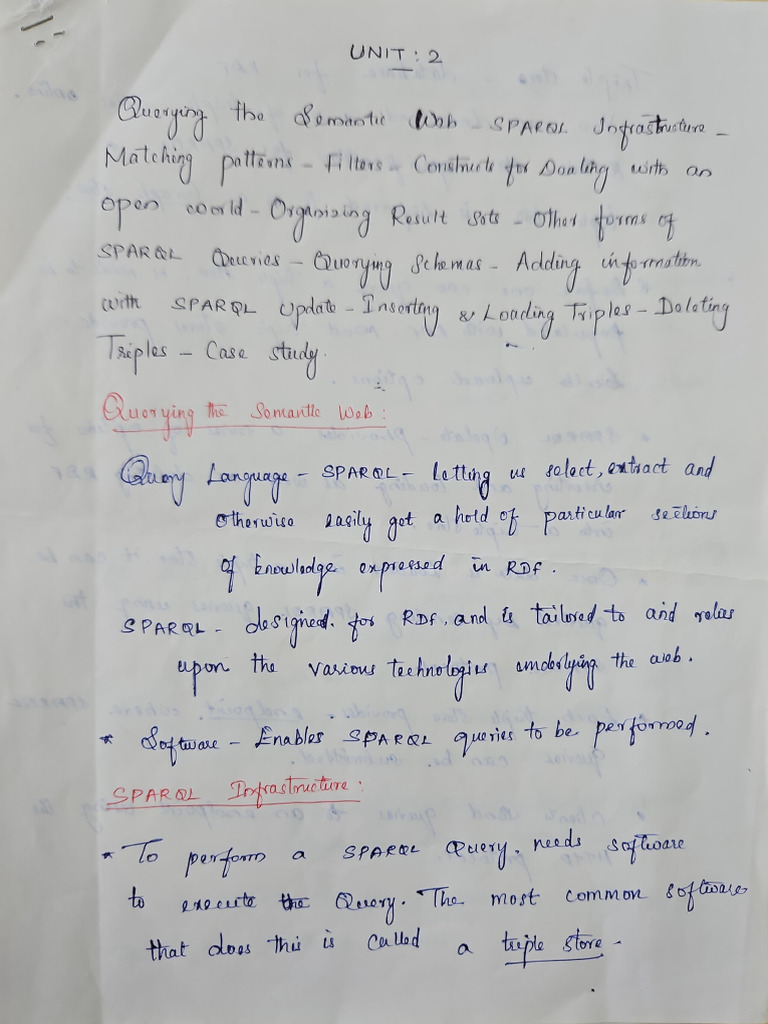 UNIT : 2
Querying the Semantic Web - SPARQL Infrastructure -
Matching patterns - Filters - Constructs for Dealing with an
open world - Organizing Result sets - Other forms of
SPARQL Queries - Querying Schemas - Adding information
with SPARQL Update - Inserting & Loading Triples - Deleting
Triples - Case study.
Querying the Semantic Web :
Query Language - SPARQL - Letting us select, extract and
otherwise easily get a hold of particular sections
of knowledge expressed in RDF.
SPARQL - designed. for RDF, and is tailored to and relies
upon the various technologies underlying the web.
* Software - Enables SPARQL queries to be performed.
SPARQL Infrastructure :
* To perform a SPARQL Query, needs software
to execute the Query. The most common software
that does this is called a triple store.